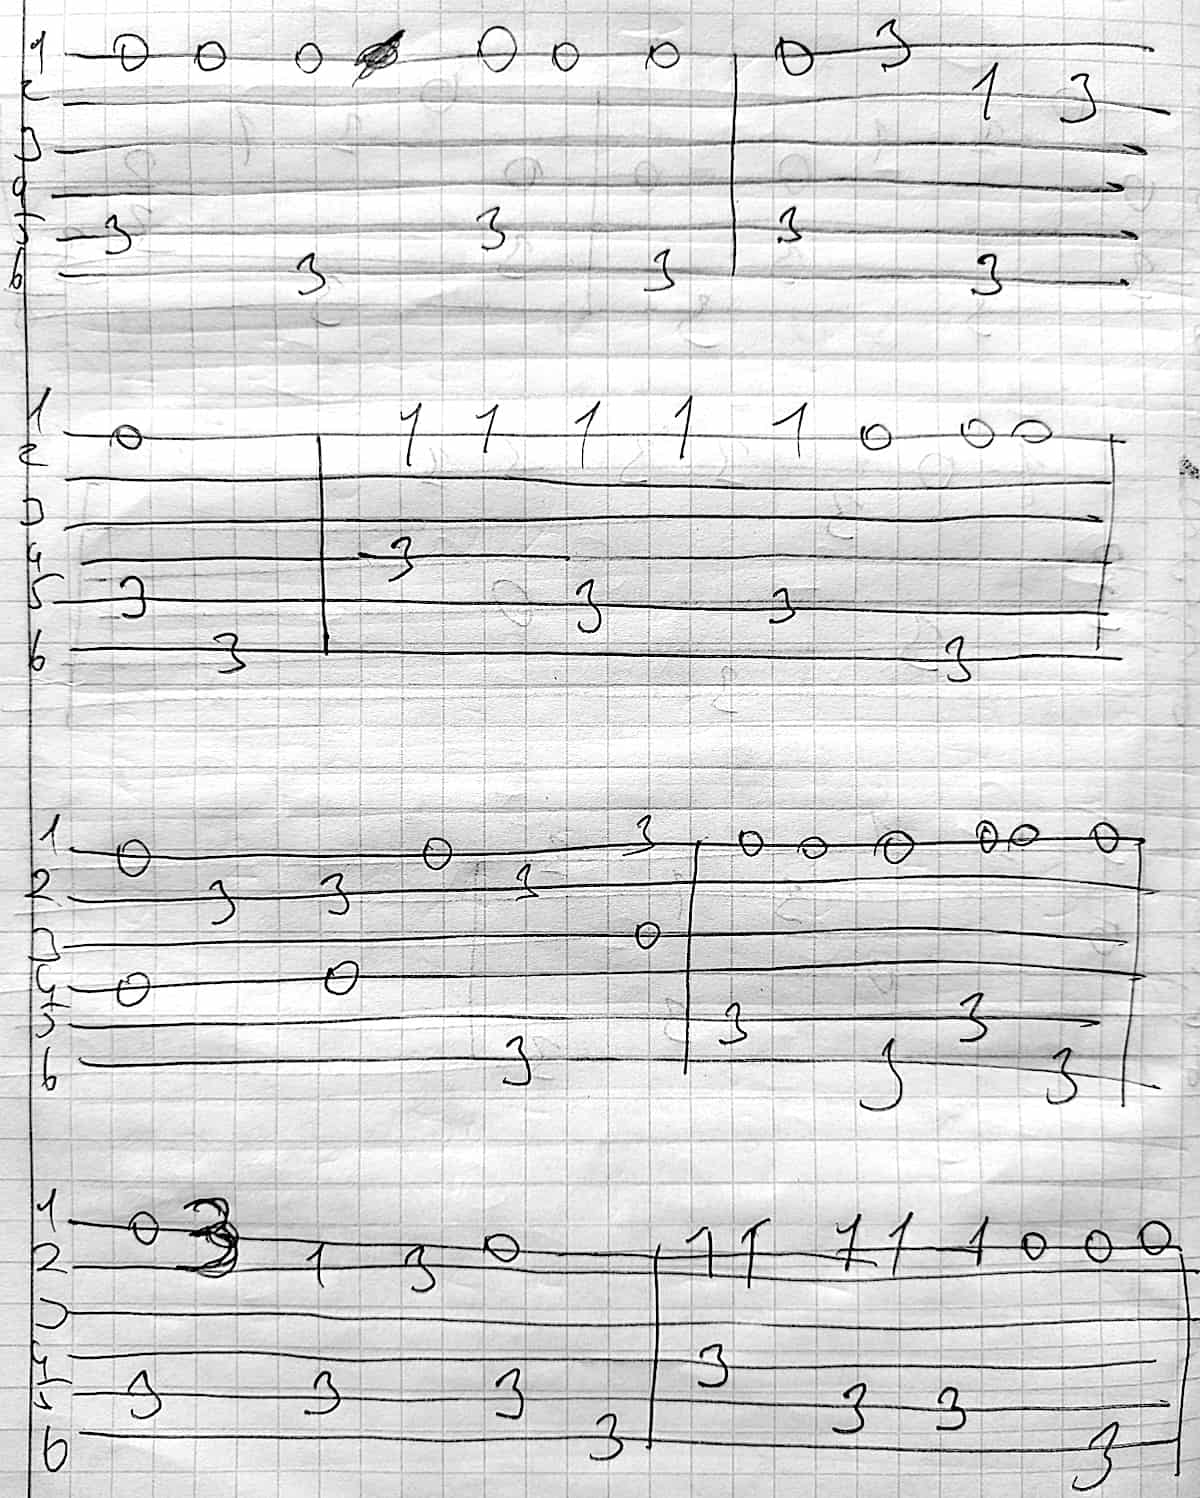 1 0 0 0 0 0 0 0 3
2 1 3
3
4
5 3 3 3
6 3 3 3
1 0 1 1 1 1 1 0 0 0
2
3
4 3
5 3 3 3
6 3 3
1 0 0 3 0 0 0 0 0 0
2 3 3 3
3 0
4 0 0
5 3 3
6 3 3 3
1 0 3 0 1 1 1 1 1 0 0 0
2 1 3
3
4 3
5 3 3 3 3 3
6 3 3